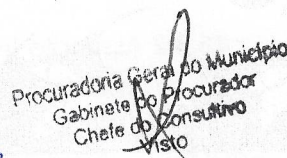 Procuradoria Geral do Município
Gabinete do Procurador
Chefe do Consultivo
Visto